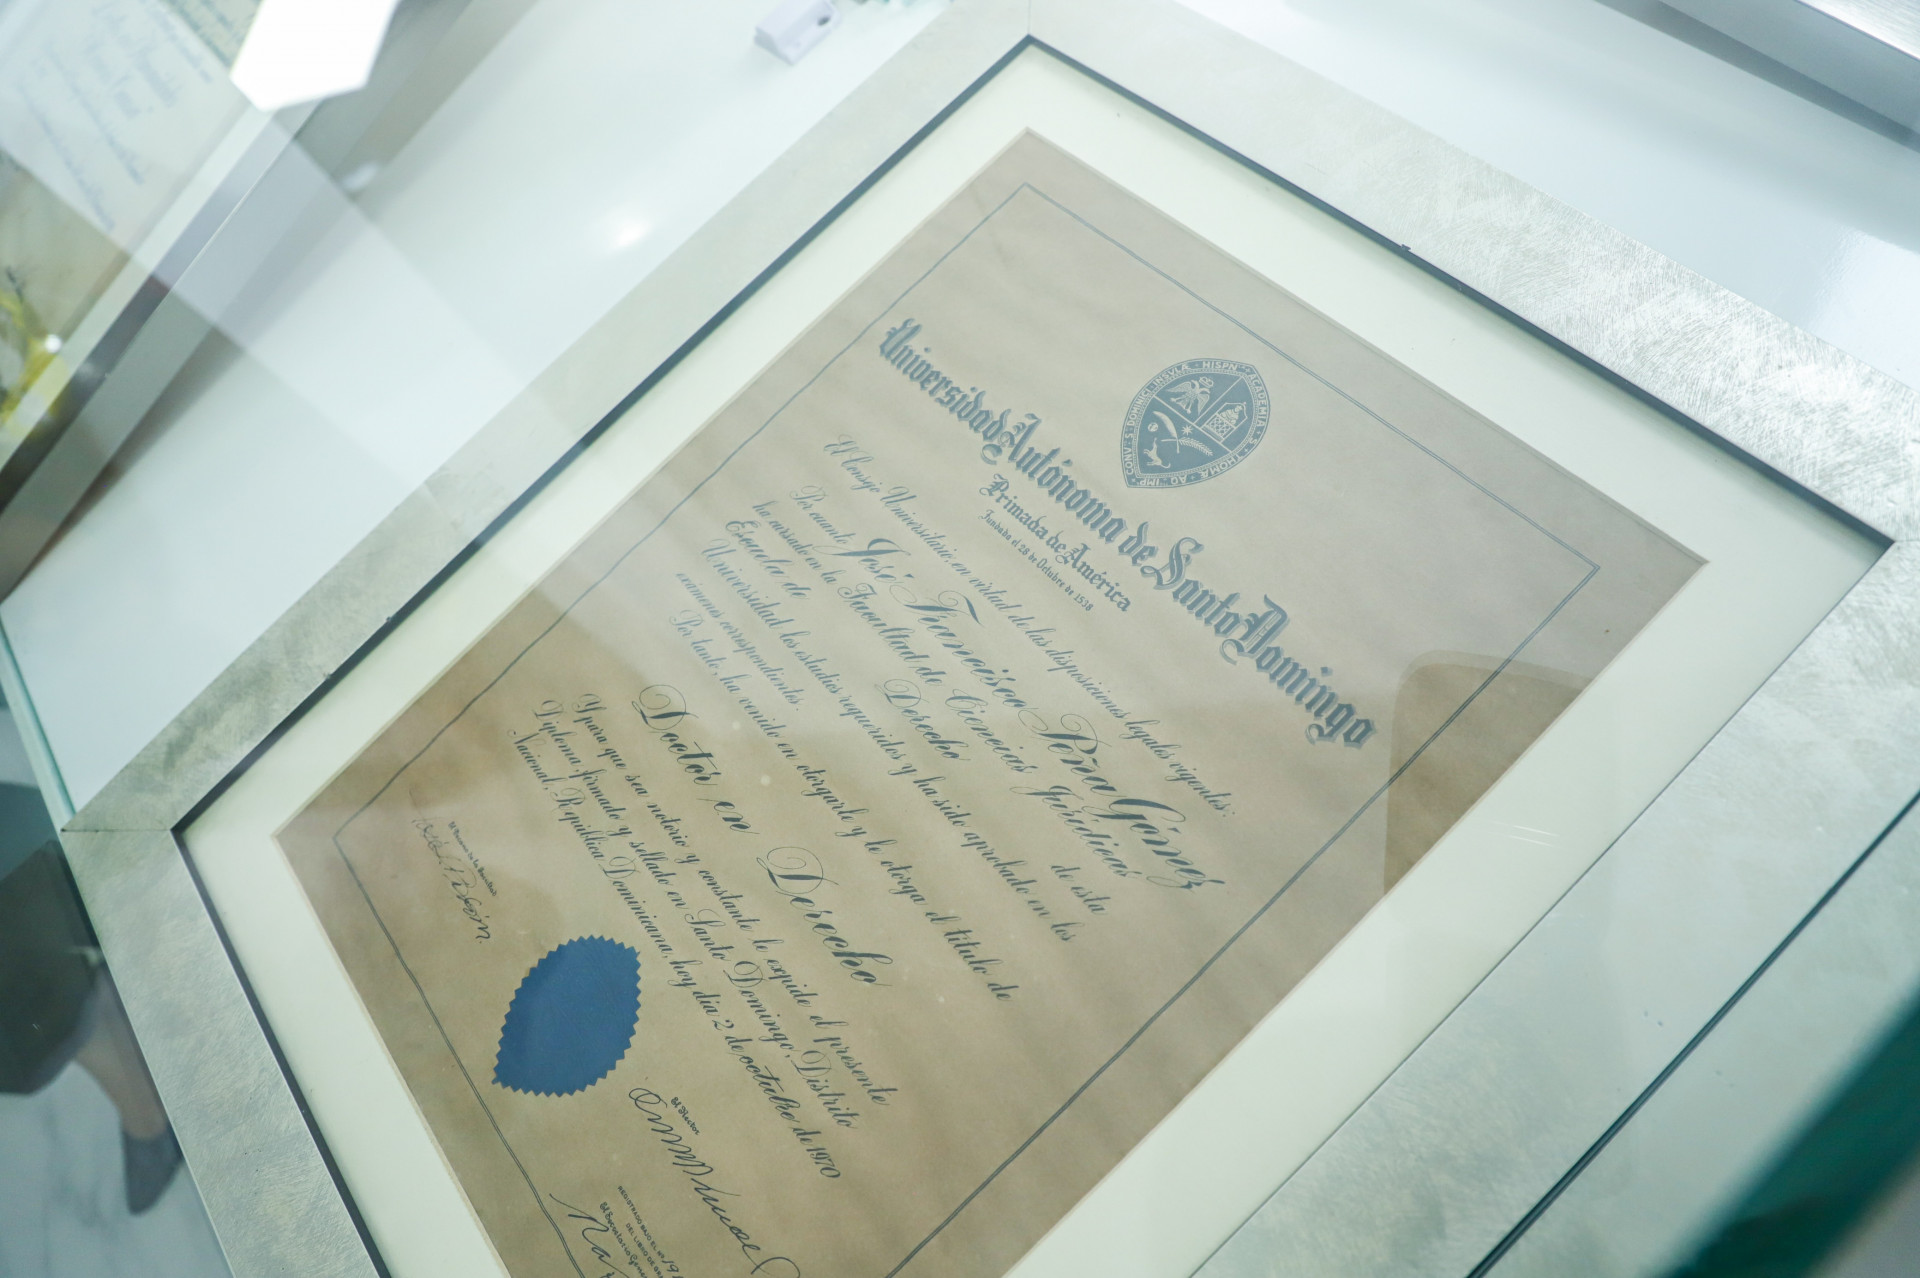 CONV · S · DOMINICI · INSVLÆ · HISPN · ACADEMIA · S · THOMÆ · AQ · IMP
Universidad Autónoma de Santo Domingo
Primada de América
Fundada el 28 de Octubre de 1538
El Consejo Universitario, en virtud de las disposiciones legales vigentes:
Por cuanto José Francisco Peña Gómez
ha cursado en la Facultad de Ciencias Jurídicas
Escuela de Derecho de esta
Universidad los estudios requeridos y ha sido aprobado en los
exámenes correspondientes.
Por tanto, ha venido en otorgarle y le otorga el título de
Doctor en Derecho
Y para que sea notorio y constante le expide el presente
Diploma, firmado y sellado en Santo Domingo, Distrito
Nacional, República Dominicana, hoy día 2 de octubre de 1970
El Decano de la Facultad
El Rector
REGISTRADO BAJO EL Nº
DEL LIBRO DE
El Secretario General